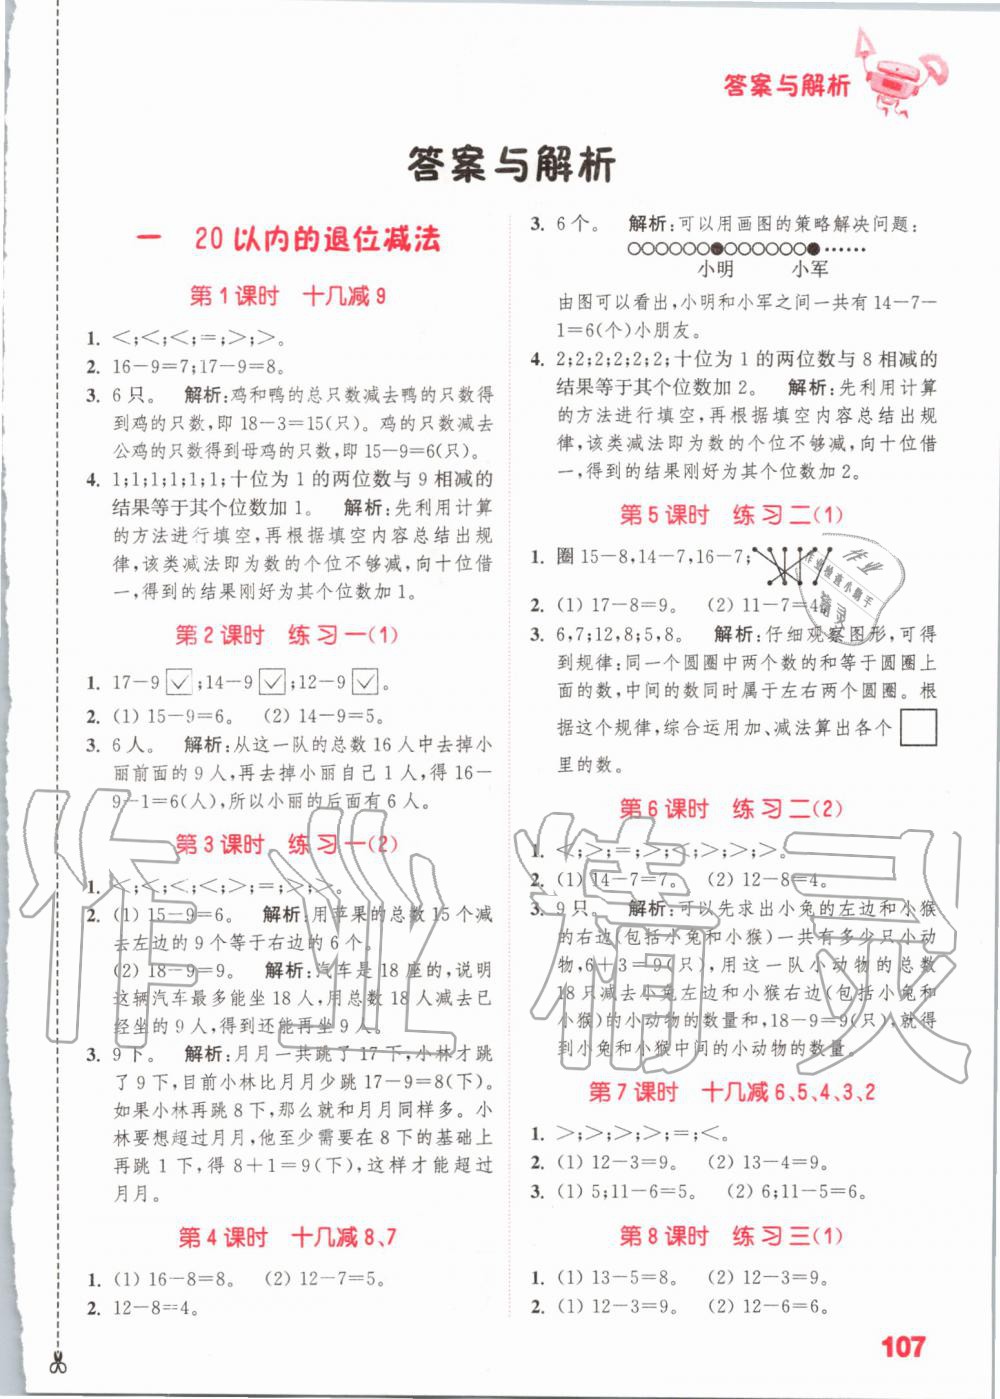 答案与解析
答案与解析
一 20以内的退位减法
第1课时 十几减9
1. <;<;<;=;>;>。
2. 16-9=7;17-9=8。
3. 6只。 解析:鸡和鸭的总只数减去鸭的只数得
到鸡的只数,即18-3=15(只)。鸡的只数减去
公鸡的只数得到母鸡的只数,即15-9=6(只)。
4. 1;1;1;1;1;十位为1的两位数与9相减的
结果等于其个位数加1。 解析:先利用计算
的方法进行填空,再根据填空内容总结出规
律,该类减法即为数的个位不够减,向十位借
一,得到的结果刚好为其个位数加1。
第2课时 练习一(1)
1. 17-9☑;14-9☑;12-9☑。
2. (1) 15-9=6。 (2) 14-9=5。
3. 6人。 解析:从这一队的总数16人中去掉小
丽前面的9人,再去掉小丽自己1人,得16-
9-1=6(人),所以小丽的后面有6人。
第3课时 练习一(2)
1. <;<;<;<;>;=;>;>。
2. (1) 15-9=6。 解析:用苹果的总数15个减
去左边的9个等于右边的6个。
(2) 18-9=9。 解析:汽车是18座的,说明
这辆汽车最多能坐18人,用总数18人减去已
经坐的9人,得到还能再坐9人。
3. 9下。 解析:月月一共跳了17下,小林才跳
了9下,目前小林比月月少跳17-9=8(下)。
如果小林再跳8下,那么就和月月同样多。小
林要想超过月月,他至少需要在8下的基础上
再跳1下,得8+1=9(下),这样才能超过
月月。
第4课时 十几减8、7
1. (1) 16-8=8。 (2) 12-7=5。
2. 12-8=4。
3. 6个。 解析:可以用画图的策略解决问题:
○○○○○○○●○○○○○○●……
小明 小军
由图可以看出,小明和小军之间一共有14-7-
1=6(个)小朋友。
4. 2;2;2;2;2;十位为1的两位数与8相减的
结果等于其个位数加2。 解析:先利用计算
的方法进行填空,再根据填空内容总结出规
律,该类减法即为数的个位不够减,向十位借
一,得到的结果刚好为其个位数加2。
第5课时 练习二(1)
1. 圈15-8,14-7,16-7;
2. (1) 17-8=9。 (2) 11-7=4。
3. 6,7;12,8;5,8。 解析:仔细观察图形,可得
到规律:同一个圆圈中两个数的和等于圆圈上
面的数,中间的数同时属于左右两个圆圈。根
据这个规律,综合运用加、减法算出各个□
里的数。
第6课时 练习二(2)
1. <;>;=;>;<;>;>;>。
2. (1) 14-7=7。 (2) 12-8=4。
3. 9只。 解析:可以先求出小兔的左边和小猴
的右边(包括小兔和小猴)一共有多少只小动
物,6+3=9(只),用这一队小动物的总数
18只减去小兔左边和小猴右边(包括小兔和
小猴)的小动物的数量和,18-9=9(只),得
到小兔和小猴中间的小动物的数量。
第7课时 十几减6、5、4、3、2
1. >;>;>;>;=;<。
2. (1) 12-3=9。 (2) 13-4=9。
3. (1) 5;11-6=5。 (2) 6;11-5=6。
第8课时 练习三(1)
1. (1) 13-5=8。 (2) 12-3=9。
2. (1) 12-3=9。 (2) 12-6=6。
107
作业精灵